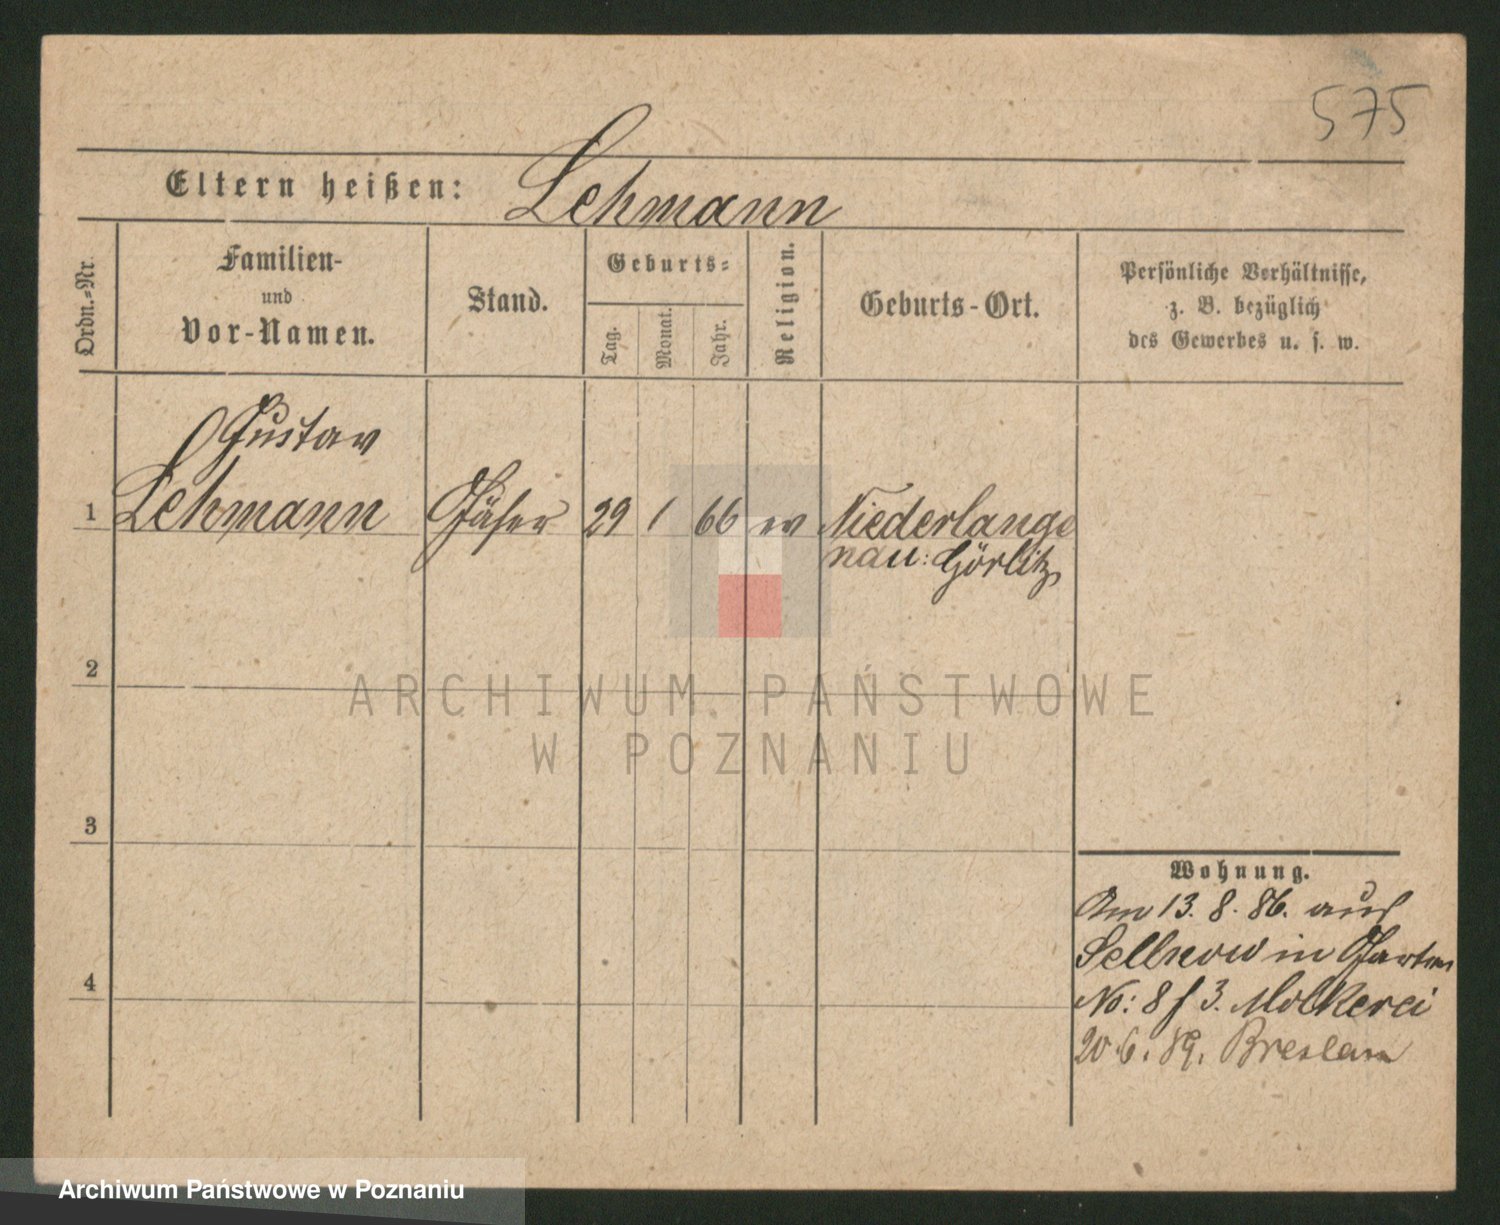 575
Eltern heißen: Lehmann
Ordn.=Nr.
Familien-
und
Vor-Namen.
Stand.
Geburts=
Tag.
Monat.
Jahr.
Religion.
Geburts-Ort.
Persönliche Verhältnisse,
z. B. bezüglich
des Gewerbes u. s. w.
Gustav
1 Lehmann 29 1 66 ev Niederlange
nau: Görlitz
2
3
4
Wohnung.
Am 13. 8. 86. aus
in Garten
No: 8 f 3. Molkerei
20.6.89. Breslau
ARCHIWUM PAŃSTWOWE
W POZNANIU
Archiwum Państwowe w Poznaniu